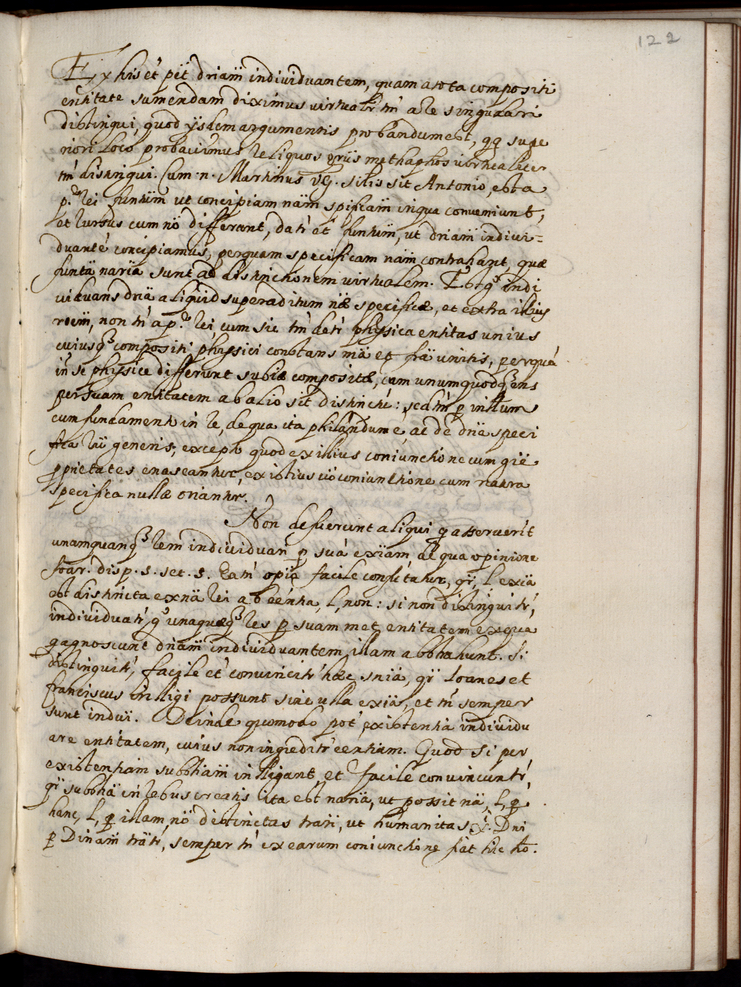 122
Ex his et pēt driam̄ individuantem, quam a tota compositi
entitate sumendam diximus virtualr̄ tm̄ a re singulari
distingui, quod ysdem argumentis probandum est, qq supe
riori loco probavimus reliquos metaphos virtualiter
tm̄ distingui. Cum n. Martinus vg. silis sit Antonio, est a
p. rei fundm̄ ut concipiam nam̄ spificam̄ in qua conveniunt,
et rursus cum nō differant, datr̄ et fundm̄, ut driam̄ indivi-
duantē concipiamus, per quam specificam nam̄ contrahant, quæ
sunt naria sunt ad distinctionem virtualem. Est g. indi
viduans dria aliquid superaditum næ specificæ, et extra illius
rōem̄, non tn̄ a p. rei cum sic tm̄ detr̄ physica entitas unius
cuiusq compositi physici constans mā et frā unitis, per quā
in se physice differunt subiæ compositæ, cum unumquodq ens
per suam entitatem ab alio sit distinctū: sed tm̄ p intum
cum fundament in re, de qua ita philandum ē, ac de driā speci
fica generis, excepto quod ex illius coniunctione cum giē
pprietates enascantur, ex istius vō coniantione cum natura
specifica nullæ oriantur.
Non defuerunt aliqui q asseruerit
unamquanq rem individuari p suā exiam̄ de qua opinione
soar. disp. 5. set. 5. Ea tn̄ opiō facile confutatur, qr̄, l. exiā
est distincta ex nā rei ab eēntia, l. non: si non distinguitr̄,
individuatr̄ g. unaquæq res p suam met entitatem ex qua
qq agnoscunt driam̄ individuantem illam abstrahunt. Si
distinguitr̄, facile et convincitr̄ hæc sniā, qr̄ Ioanes et
franciscus intligi possunt sine ulla exiā, et tn̄ semper
sunt indivi. Deinde quomodo pot existentia individu
are entitatem, cuius non ingreditr̄ eentiam. Quod si per
existentiam subsiām intlligant, et facile convincuntr̄,
qr̄ subsiā in rebus creatis ita est nariā, ut possit nā, l. p
hanc, l. p illam nō distinctas trari, ut humanitas X. Dni
p Divinam̄ trātr̄, semper tn̄ ex earum coniunctione fiat hic ho.